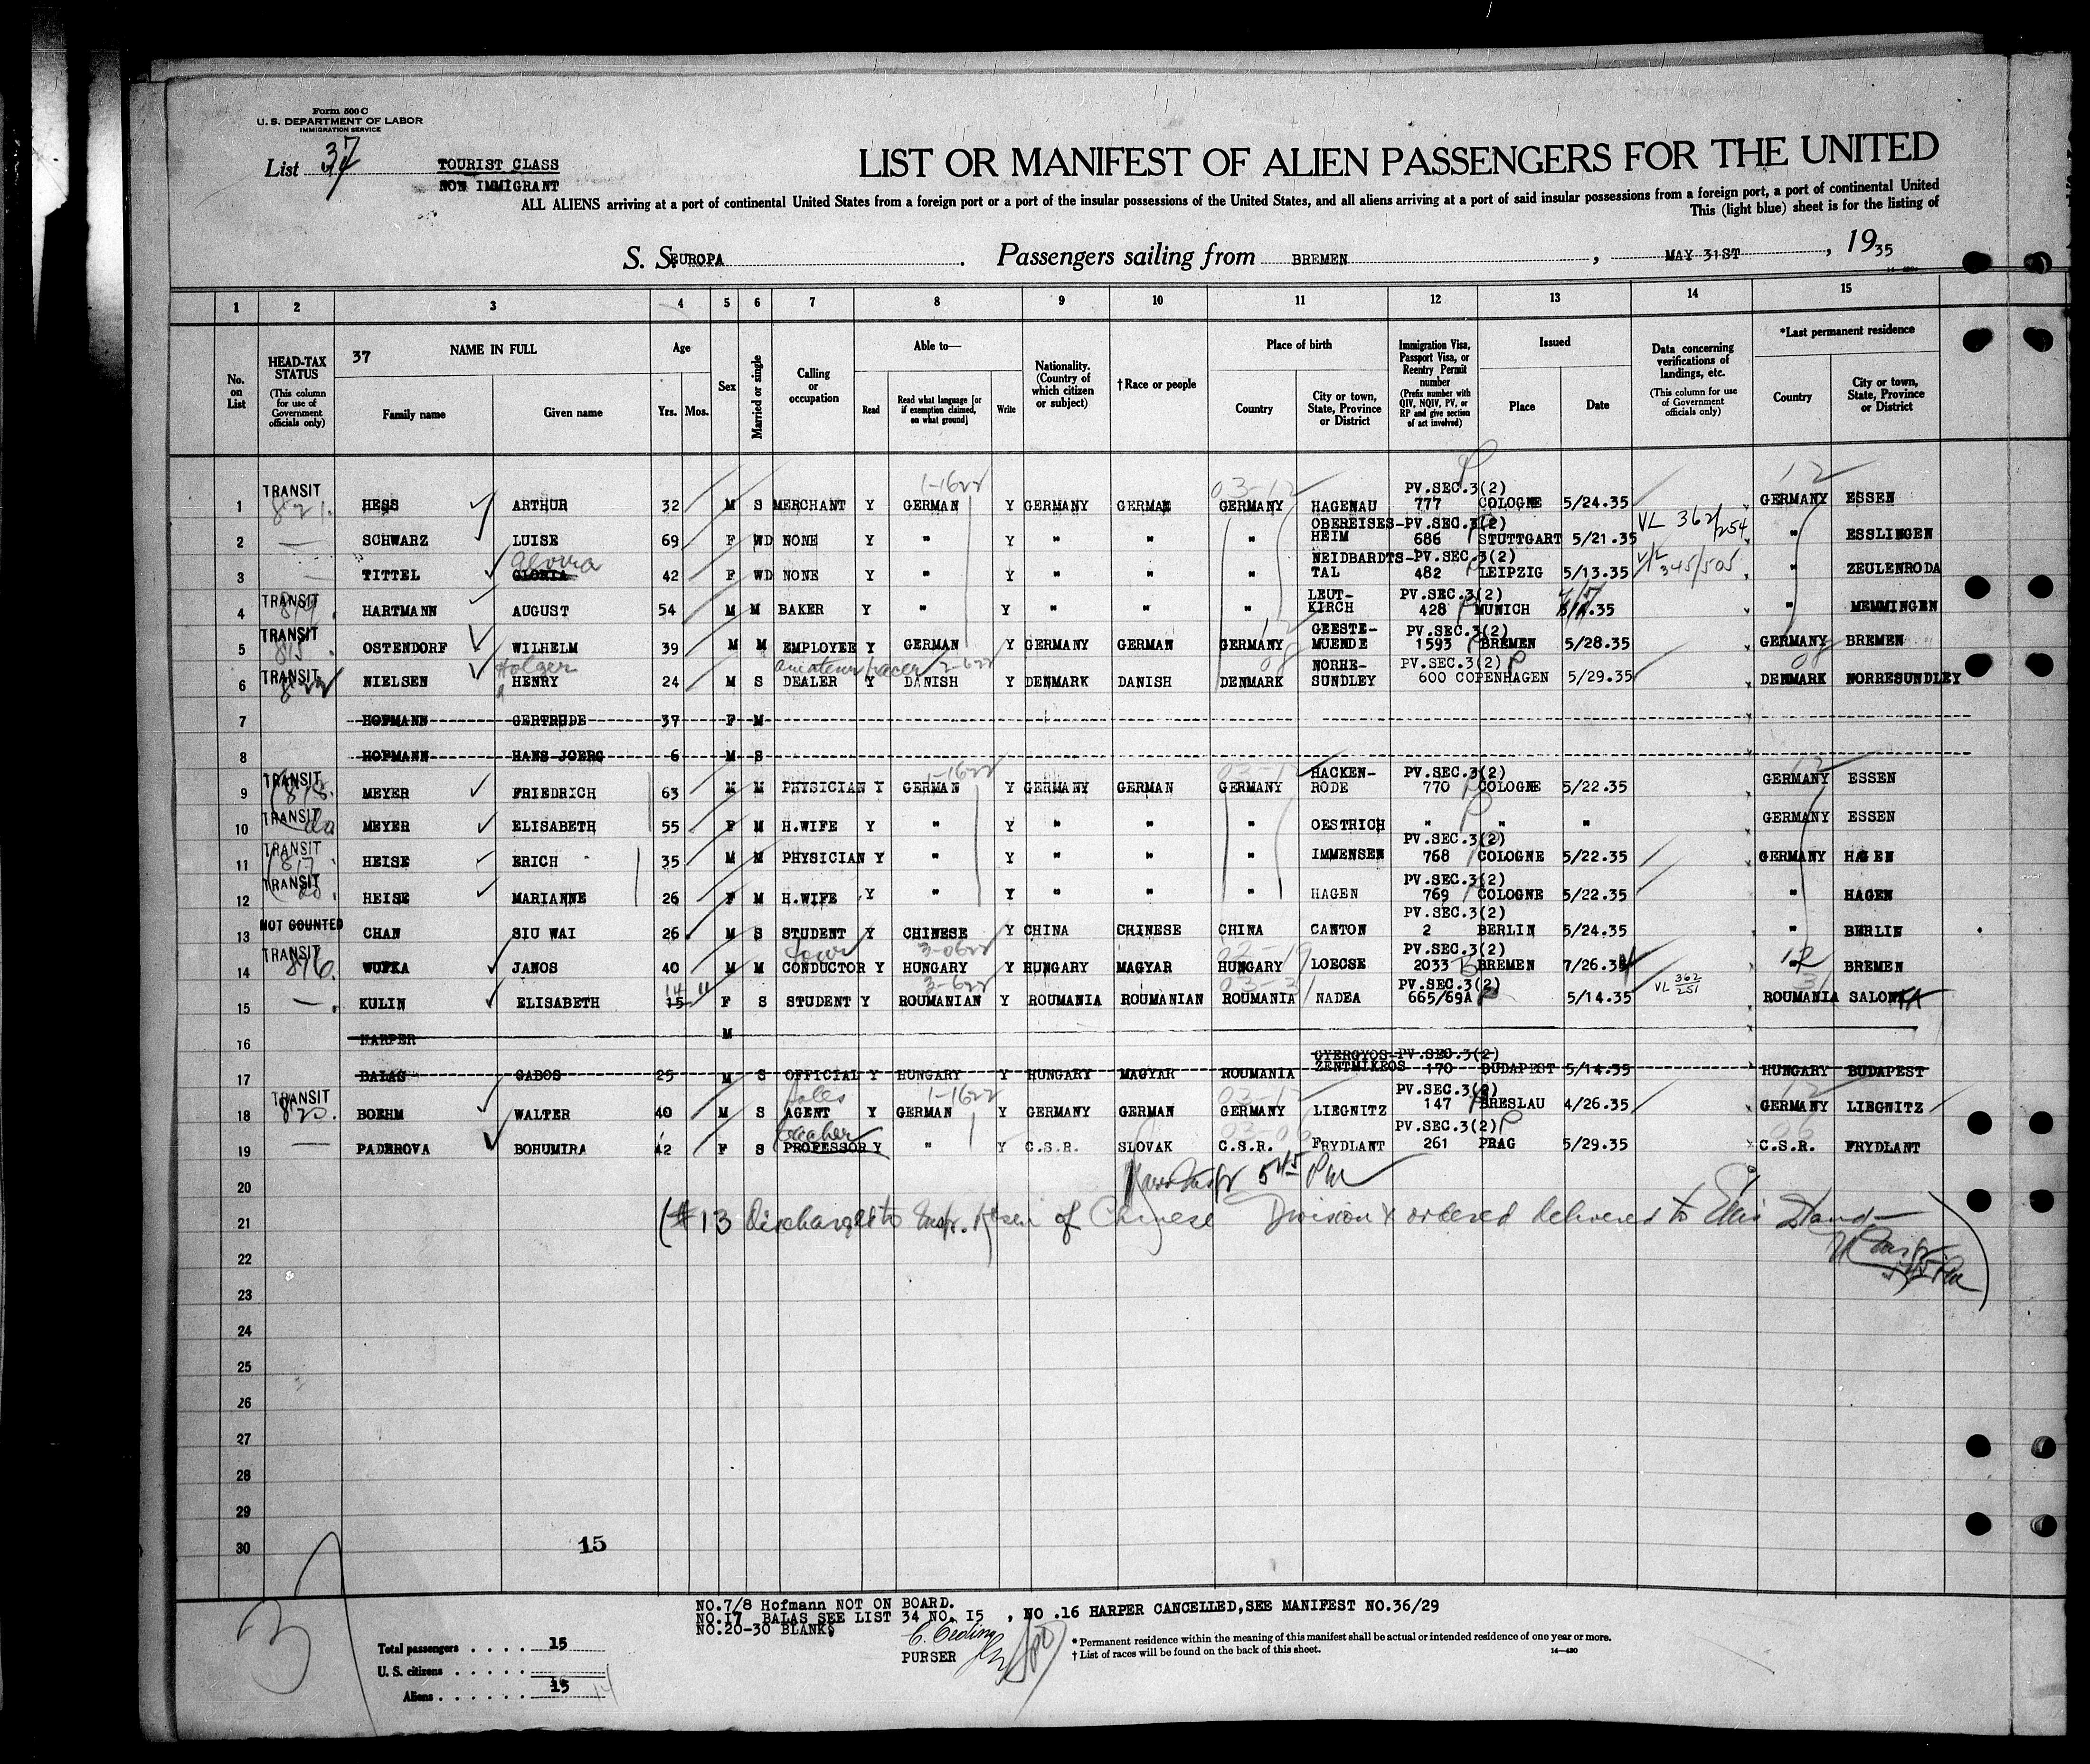 Form 500 C
U. S. DEPARTMENT OF LABOR
IMMIGRATION SERVICE
List 37
TOURIST CLASS
NON IMMIGRANT
LIST OR MANIFEST OF ALIEN PASSENGERS FOR THE UNITED
ALL ALIENS arriving at a port of continental United States from a foreign port or a port of the insular possessions of the United States, and all aliens arriving at a port of said insular possessions from a foreign port, a port of continental United
This (light blue) sheet is for the listing of
S. S. EUROPA . Passengers sailing from BREMEN , MAY 31ST , 1935
1 2 3 4 5 6 7 8 9 10 11 12 13 14 15
No. on List
HEAD-TAX STATUS
(This column for use of Government officials only)
37 NAME IN FULL
Family name
Given name
Age
Yrs. Mos.
Sex
Married or single
Calling or occupation
Able to—
Read
Read what language [or if exemption claimed, on what ground]
Write
Nationality. (Country of which citizen or subject)
†Race or people
Place of birth
Country
City or town, State, Province or District
Immigration Visa, Passport Visa, or Reentry Permit number
(Prefix number with QIV, NQIV, PV, or RP and give section of act involved)
Issued
Place
Date
Data concerning verifications of landings, etc.
(This column for use of Government officials only)
*Last permanent residence
Country
City or town, State, Province or District
1 TRANSIT 821. HESS ARTHUR 32 M S MERCHANT Y GERMAN 1-1622 Y GERMANY GERMAN GERMANY HAGENAU PV.SEC.3(2) 777 COLOGNE 5/24.35 GERMANY ESSEN
2 — SCHWARZ LUISE 69 F WD NONE Y " Y " " " OBEREISES-HEIM PV.SEC.3(2) 686 STUTTGART 5/21.35 VL 362/254 " ESSLINGEN
3 — TITTEL GLORIA 42 F WD NONE Y " Y " " " NEIDBARDTS-TAL PV.SEC.3(2) 482 LEIPZIG 5/13.35 345/505 " ZEULENRODA
4 TRANSIT HARTMANN AUGUST 54 M M BAKER Y " Y " " " LEUT-KIRCH PV.SEC.3(2) 428 MUNICH .35 " MEMMINGEN
5 TRANSIT 815 OSTENDORF WILHELM 39 M M EMPLOYEE Y GERMAN Y GERMANY GERMAN GERMANY GEESTE-MUENDE PV.SEC.3(2) 1593 BREMEN 5/28.35 GERMANY BREMEN
6 TRANSIT NIELSEN Holger HENRY 24 M S amateur racer DEALER Y DANISH 2-622 Y DENMARK DANISH DENMARK NORHE-SUNDLEY PV.SEC.3(2) 600 COPENHAGEN 5/29.35 DENMARK NORRESUNDLEY
7 HOFMANN GERTRUDE 37 F M
8 HOFMANN HANS JOERG 6 M S
9 TRANSIT 818. MEYER FRIEDRICH 63 M M PHYSICIAN Y GERMAN 1-1622 Y GERMANY GERMAN GERMANY HACKEN-RODE PV.SEC.3(2) 770 COLOGNE 5/22.35 GERMANY ESSEN
10 TRANSIT do MEYER ELISABETH 55 F M H.WIFE Y " Y " " " OESTRICH " " " GERMANY ESSEN
11 TRANSIT 817 HEISE ERICH 35 M M PHYSICIAN Y " Y " " " IMMENSEN PV.SEC.3(2) 768 COLOGNE 5/22.35 GERMANY HAGEN
12 TRANSIT do. HEISE MARIANNE 26 F M H.WIFE Y " Y " " " HAGEN PV.SEC.3(2) 769 COLOGNE 5/22.35 " HAGEN
13 NOT COUNTED CHAN SIU WAI 26 M S STUDENT Y CHINESE Y CHINA CHINESE CHINA CANTON PV.SEC.3(2) 2 BERLIN 5/24.35 " BERLIN
14 TRANSIT 816. WUFKA JANOS 40 M M CONDUCTOR Y HUNGARY 3-0622 Y HUNGARY MAGYAR HUNGARY LOECSE PV.SEC.3(2) 2033 BREMEN 7/26.34 " BREMEN
15 — KULIN ELISABETH 15 14 11 F S STUDENT Y ROUMANIAN 3-622 Y ROUMANIA ROUMANIAN ROUMANIA NADEA PV.SEC.3(2) 665/69A 5/14.35 VL 362/251 ROUMANIA SALONTA
16 HARPER M
17 BALAS GABOS 25 M S OFFICIAL Y HUNGARY Y HUNGARY MAGYAR ROUMANIA GYERGYOS-ZENTMIKEOS PV.SEC.3(2) 170 BUDAPEST 5/14.35 HUNGARY BUDAPEST
18 TRANSIT 820. BOEHM WALTER 40 M S Sales AGENT Y GERMAN 1-1622 Y GERMANY GERMAN GERMANY LIEGNITZ PV.SEC.3(2) 147 BRESLAU 4/26.35 GERMANY LIEGNITZ
19 — PADEROVA BOHUMIRA 42 F S teacher PROFESSOR Y " Y C.S.R. SLOVAK C.S.R. FRYDLANT PV.SEC.3(2) 261 PRAG 5/29.35 C.S.R. FRYDLANT
20 545 PM
21 (#13 Discharged to Insp. of Chinese Division & ordered delivered to Ellis Island—
22
23
24
25
26
27
28
29
30 15
NO.7/8 Hofmann NOT ON BOARD.
NO.17 BALAS SEE LIST 34 NO. 15 , NO .16 HARPER CANCELLED,SEE MANIFEST NO.36/29
NO.20-30 BLANKS
PURSER
Total passengers . . . . 15
U. S. citizens . . . . . .
Aliens . . . . . . 15 14
* Permanent residence within the meaning of this manifest shall be actual or intended residence of one year or more.
† List of races will be found on the back of this sheet.
14—480